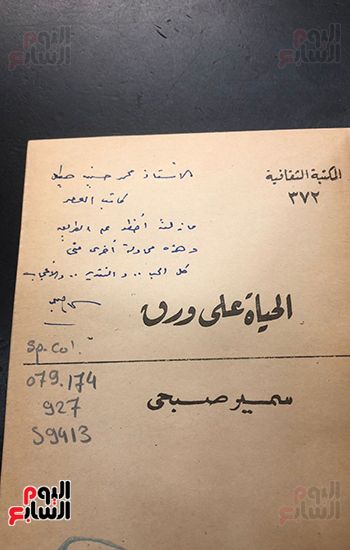 اليوم السابع
اليوم السابع
المكتبة الثقافية
٣٧٢
الأستاذ محمد حسنين هيكل
كاتب العصر
مازلت أخطو على الطريق
وهذه محاولة أخرى منى
كل الحب .. والتقدير .. والإعجاب
الحياة على ورق
سميرصبحى
Sp. Col.
079.174
927
S9413
اليوم السابع
اليوم السابع